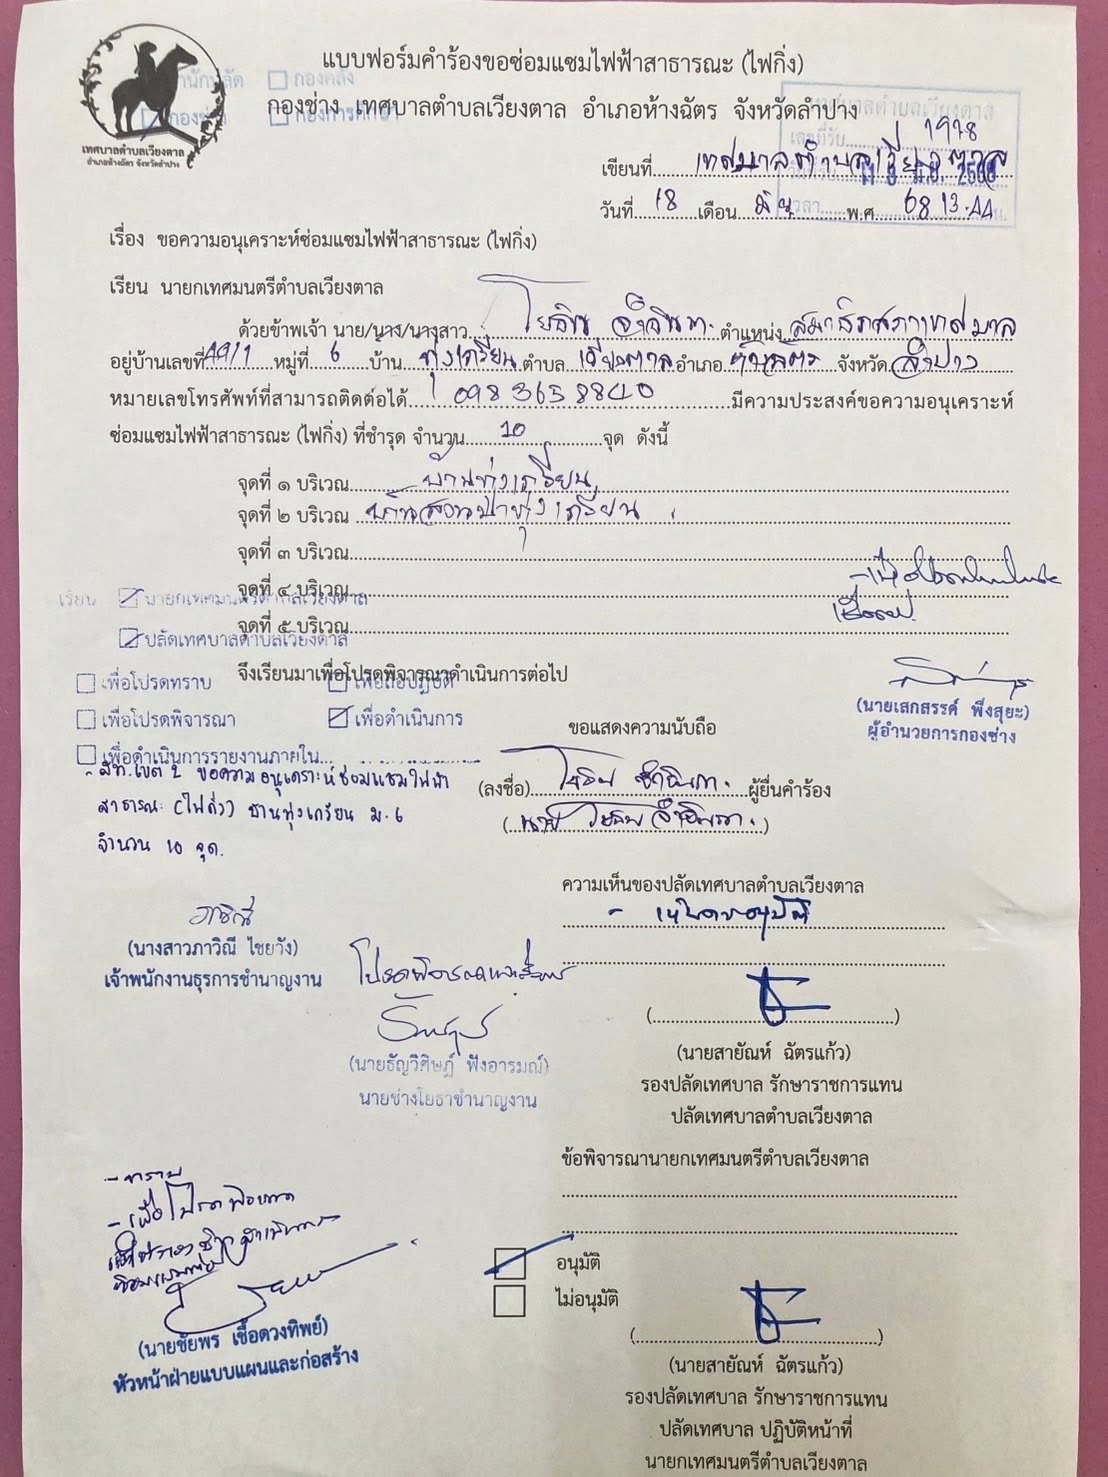 แบบฟอร์มคำร้องขอซ่อมแซมไฟฟ้าสาธารณะ (ไฟกิ่ง)
กองช่าง เทศบาลตำบลเวียงตาล อำเภอห้างฉัตร จังหวัดลำปาง
กองคลัง
กองช่าง
กองการศึกษา
เทศบาลตำบลเวียงตาล
อำเภอห้างฉัตร จังหวัดลำปาง
เทศบาลตำบลเวียงตาล
เลขที่รับ 1978
เขียนที่ เทศบาลตำบลเวียงตาล
วันที่ 18 เดือน มิย พ.ศ. 68 13.44
เรื่อง ขอความอนุเคราะห์ซ่อมแซมไฟฟ้าสาธารณะ (ไฟกิ่ง)
เรียน นายกเทศมนตรีตำบลเวียงตาล
ด้วยข้าพเจ้า นาย/นาง/นางสาว ตำแหน่ง สมาชิกสภาเทศบาล
อยู่บ้านเลขที่ 49/1 หมู่ที่ 6 บ้าน ทุ่งเกวียน ตำบล เวียงตาล อำเภอ ห้างฉัตร จังหวัด ลำปาง
หมายเลขโทรศัพท์ที่สามารถติดต่อได้ 098 3658840 มีความประสงค์ขอความอนุเคราะห์
ซ่อมแซมไฟฟ้าสาธารณะ (ไฟกิ่ง) ที่ชำรุด จำนวน 10 จุด ดังนี้
จุดที่ ๑ บริเวณ บ้านทุ่งเกวียน
จุดที่ ๒ บริเวณ บ้านสวนป่าทุ่งเกวียน
จุดที่ ๓ บริเวณ
จุดที่ ๔ บริเวณ
เรียน นายกเทศมนตรีตำบลเวียงตาล
จุดที่ ๕ บริเวณ
ปลัดเทศบาลตำบลเวียงตาล
จึงเรียนมาเพื่อโปรดพิจารณาดำเนินการต่อไป
เพื่อโปรดทราบ
เพื่อโปรดพิจารณา เพื่อดำเนินการ
เพื่อดำเนินการรายงานภายใน
(นายเสกสรรค์ พึ่งสุยะ)
ผู้อำนวยการกองช่าง
ขอแสดงความนับถือ
- สท.เขต 2 ขอความอนุเคราะห์ซ่อมแซมไฟฟ้า
สาธารณะ (ไฟกิ่ง) บ้านทุ่งเกวียน ม.6
จำนวน 10 จุด.
(ลงชื่อ) ผู้ยื่นคำร้อง
ความเห็นของปลัดเทศบาลตำบลเวียงตาล
- เห็นควรอนุมัติ
ภาวิณี
(นางสาวภาวิณี ไชยวัง)
เจ้าพนักงานธุรการชำนาญงาน
(นายธัญวิศิษฎ์ ฟังอารมณ์)
นายช่างโยธาชำนาญงาน
(นายสายัณห์ ฉัตรแก้ว)
รองปลัดเทศบาล รักษาราชการแทน
ปลัดเทศบาลตำบลเวียงตาล
ข้อพิจารณานายกเทศมนตรีตำบลเวียงตาล
อนุมัติ
ไม่อนุมัติ
- ทราบ
- เพื่อโปรดพิจารณา
(นายชัยพร เชื้อดวงทิพย์)
หัวหน้าฝ่ายแบบแผนและก่อสร้าง
(นายสายัณห์ ฉัตรแก้ว)
รองปลัดเทศบาล รักษาราชการแทน
ปลัดเทศบาล ปฏิบัติหน้าที่
นายกเทศมนตรีตำบลเวียงตาล